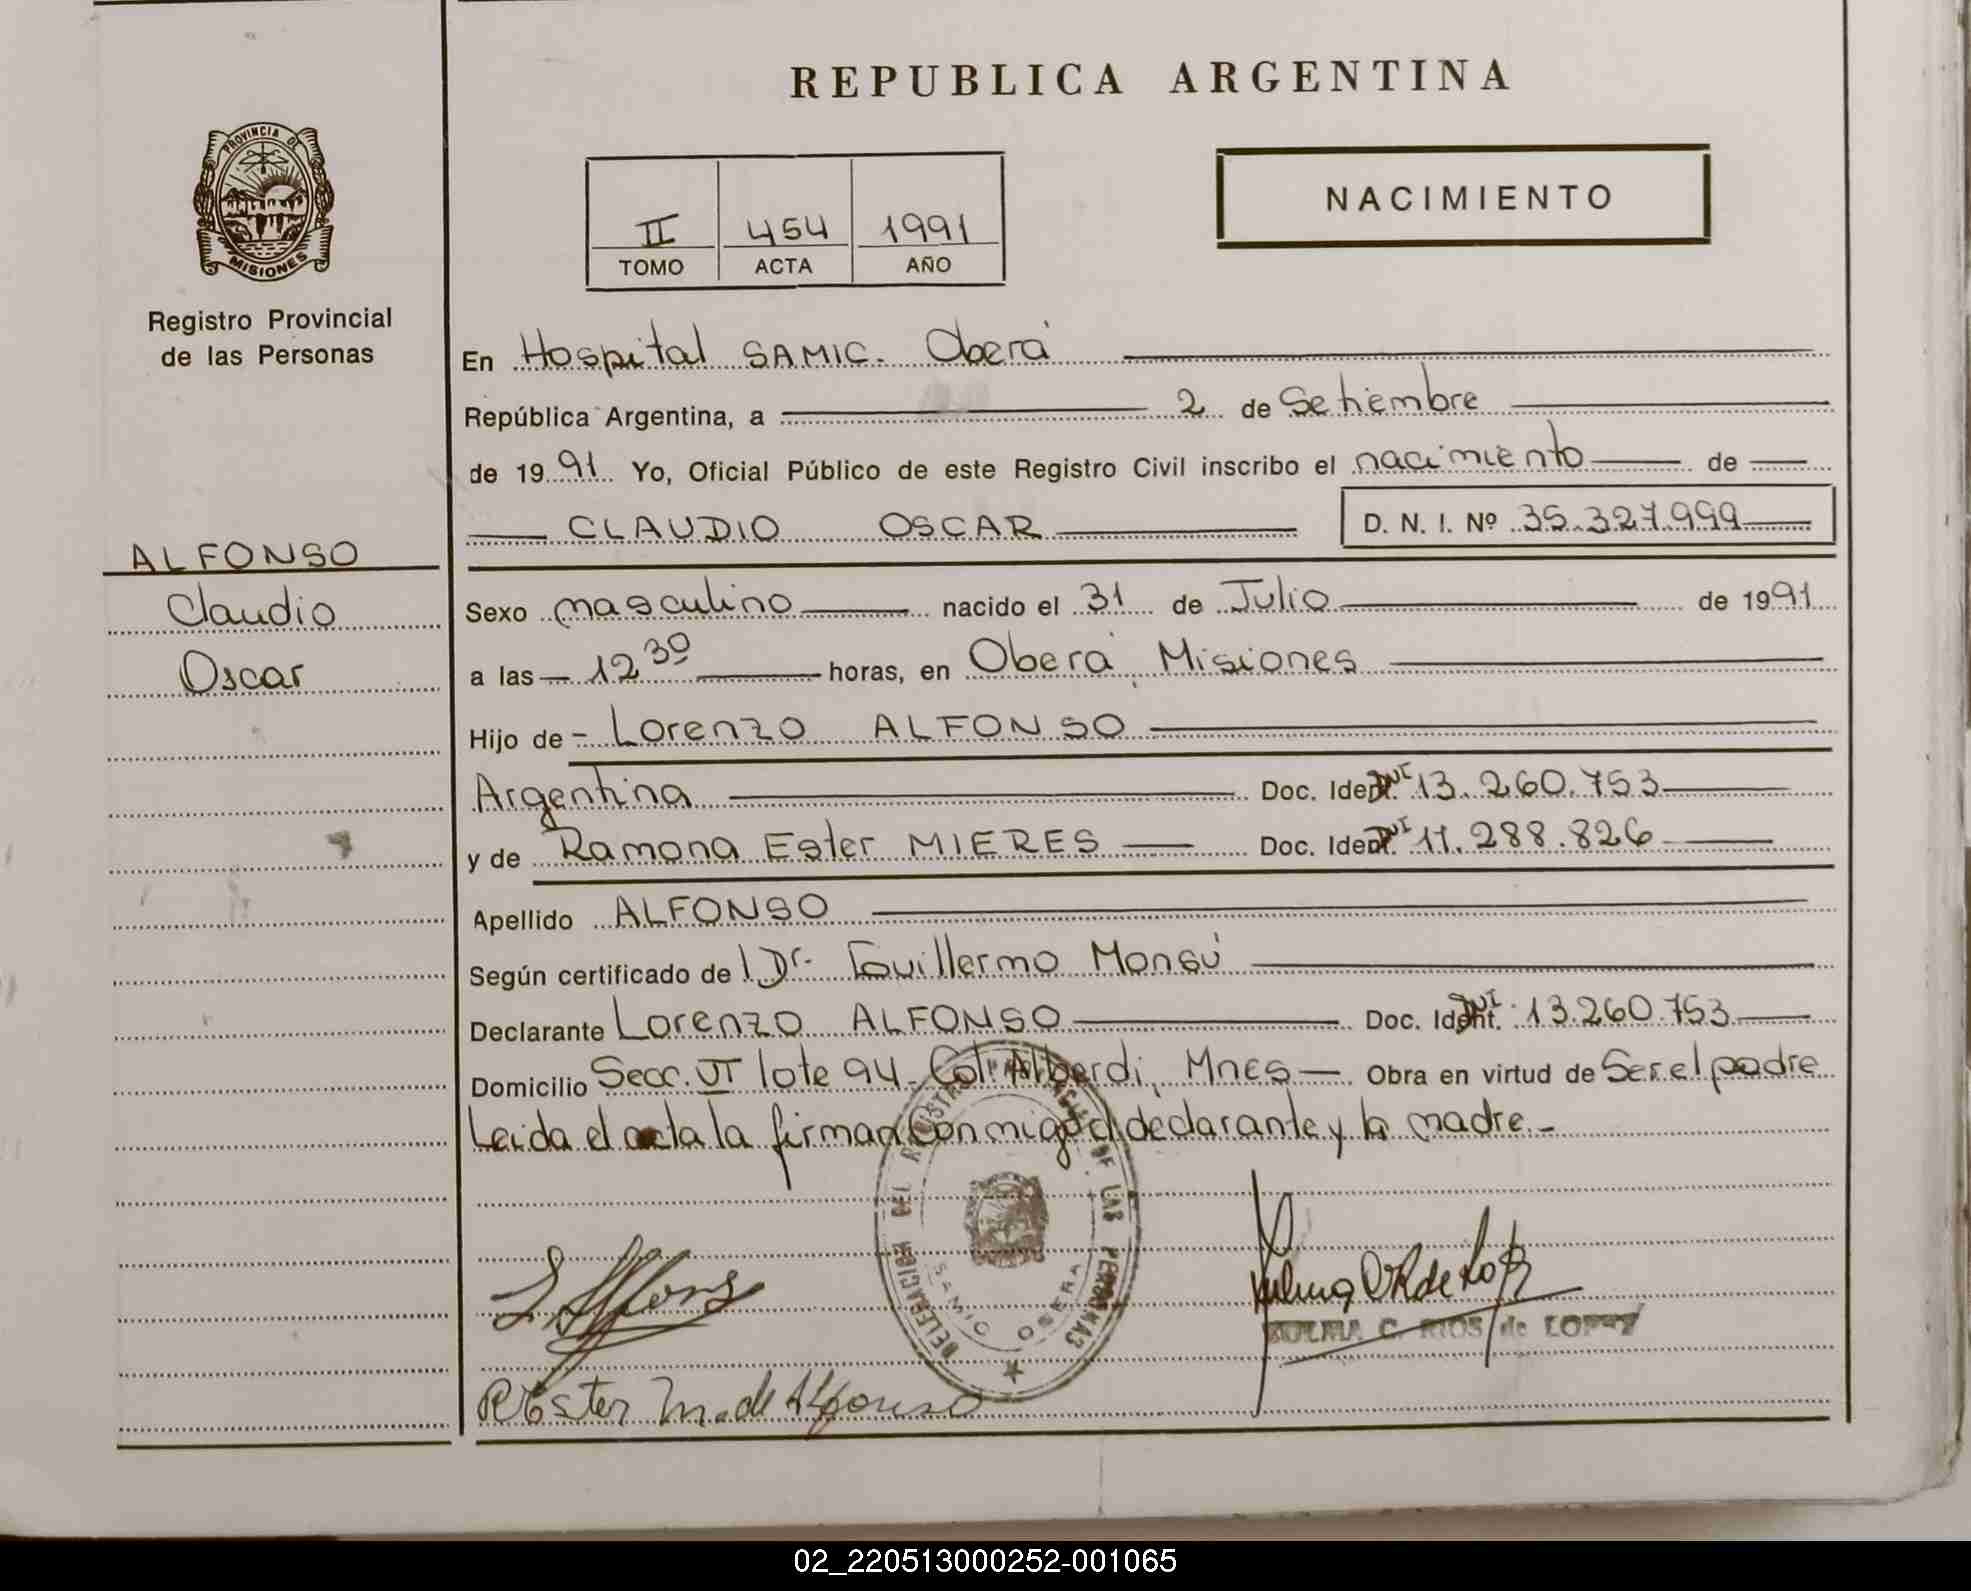 REPUBLICA ARGENTINA
PROVINCIA DE
MISIONES
Registro Provincial
de las Personas
NACIMIENTO
II 454 1991
TOMO ACTA AÑO
En Hospital SAMIC. Oberá
República Argentina, a 2 de Setiembre
de 1991 Yo, Oficial Público de este Registro Civil inscribo el nacimiento de
CLAUDIO OSCAR D. N. I. Nº 35.327.999
ALFONSO
Claudio
Oscar
Sexo masculino nacido el 31 de Julio de 1991
a las 12 30 horas, en Oberá, Misiones
Hijo de - Lorenzo ALFONSO
Argentina Doc. Ident. DNI 13.260.753
y de Ramona Ester MIERES Doc. Ident. DNI 11.288.826
Apellido ALFONSO
Según certificado del Dr. Guillermo Monsú
Declarante Lorenzo ALFONSO Doc. Ident. DNI 13.260.753
Domicilio Secc. VI lote 94 - Col. Alberdi, Mnes Obra en virtud de Ser el padre
Leida el acta la firman conmigo el declarante y la madre.-
DELEGACION DEL REGISTRO PROVINCIAL DE LAS PERSONAS
SAMIC OBERA
L. Alfonso
R Ester M. de Alfonso
ZULMA C. RIOS de LOPEZ
02_220513000252-001065